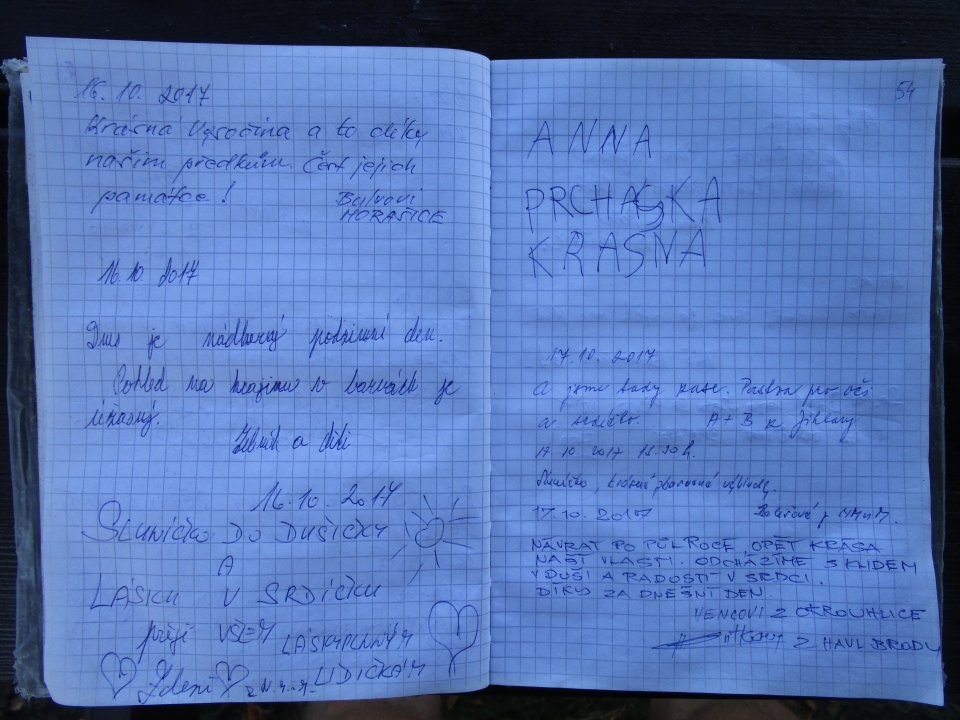 16.10.2017
Krásná Vysočina a to díky
našim předkům. Čest jejich
památce!
HORAŠICE
16.10. 2017
Dnes je nádherný podzimní den.
Pohled na krajinu v barvách je
úžasný.
a děti
16.10.2017
SLUNÍČKO DO DUŠIČKY
A
LÁSKU V SRDÍČKU
přeji VŠEM LÁSKYPLNÝM
LIDIČKÁM
Zdeni z N.M.
54
ANNA
PRCHALSKA
KRASNA
17.10.2017
A jsme tady zase. Pastva pro oči
a srdíčko. A+B z Jihlavy
17.10 2017
Sluníčko, krásné výhledy.
17.10.2017
NÁVRAT PO PŮLROCE, OPĚT KRÁSA
NAŠÍ VLASTI. ODCHÁZÍME S KLIDEM
V DUŠI A RADOSTÍ V SRDCI.
DÍKY ZA DNEŠNÍ DEN.
VENCOVI Z OKROUHLICE
Z HAVL. BRODU